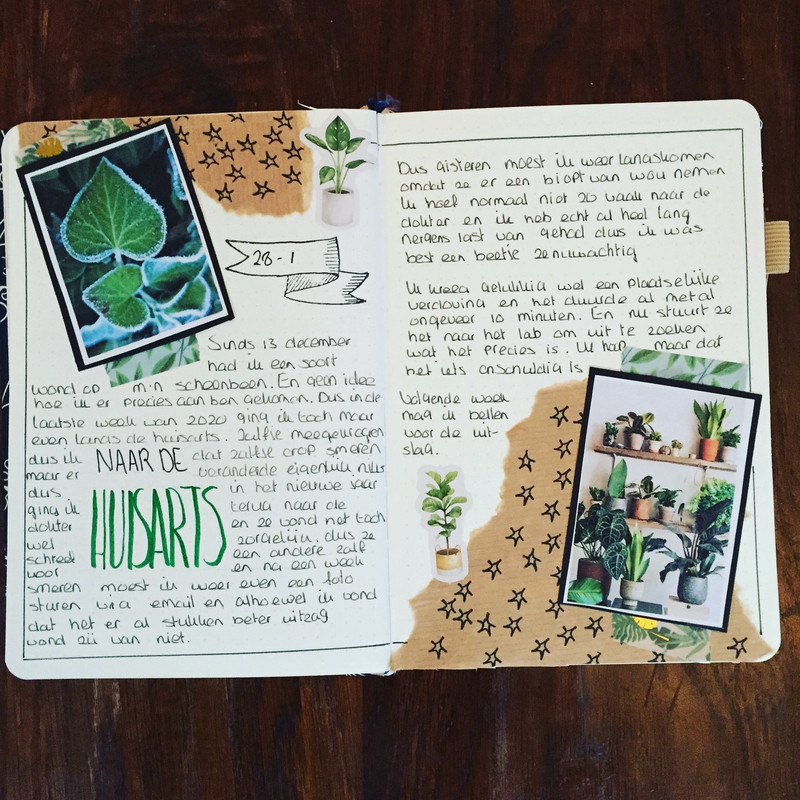 28-1
Sinds 13 december
had ik een soort
wond op m'n scheenbeen. En geen idee
hoe ik er precies aan ben gekomen. Dus in de
laatste week van 2020 ging ik toch maar
even langs de huisarts. Zalfje meegekregen
dus ik dat zalfje erop smeren
NAAR DE
maar er veranderde eigenlijk niks
HUISARTS
dus in het nieuwe jaar
ging ik terug naar de
dokter en ze vond het toch
wel zorgelijk. dus ze
schreef een andere zalf
voor en na een week
smeren moest ik weer even een foto
sturen via email en alhoewel ik vond
dat het er al stukken beter uitzag
vond zij van niet.
Dus gisteren moest ik weer langskomen
omdat ze er een biopt van wou nemen
Ik hoef normaal niet zo vaak naar de
dokter en ik heb echt al heel lang
nergens last van gehad dus ik was
best een beetje zenuwachtig
Ik kreeg gelukkig wel een plaatselijke
verdoving en het duurde al met al
ongeveer 10 minuten. En nu stuurt ze
het naar het lab om uit te zoeken
wat het precies is. Ik maar dat
het iets onschuldig is
Volgende week
mag ik bellen
voor de uit-
slag.